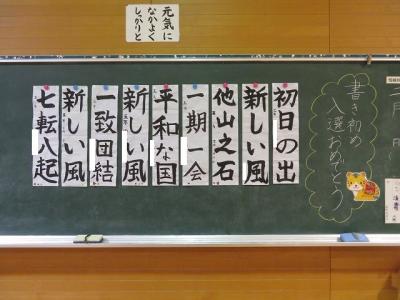 元気に
なかよく
しっかりと
書き初め
入選おめでとう
初日の出
新しい風
他山之石
一期一会
平和な国
新しい風
一致団結
新しい風
七転八起